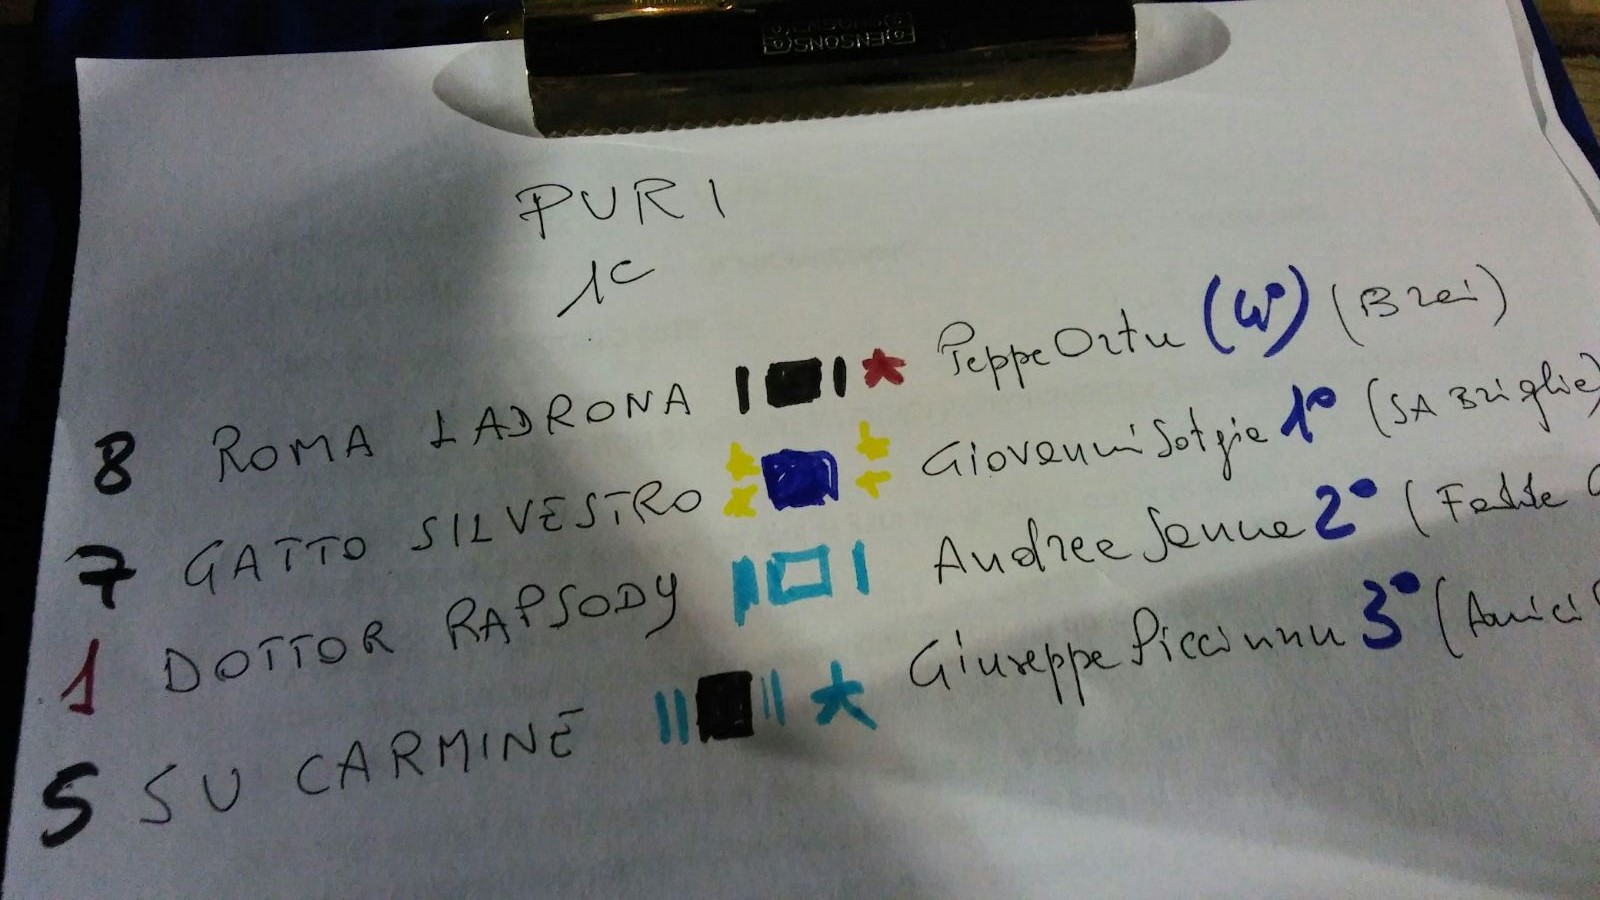 BENSONS
PURI
1C
8 ROMA LADRONA Peppe Ortu (4°) (Brai)
7 GATTO SILVESTRO Giovanni Sotgia 1° (SA Briglia)
1 DOTTOR RAPSODY Andrea Sanna 2° (
5 SU CARMINE Giuseppe Piccinnu 3° (Amici